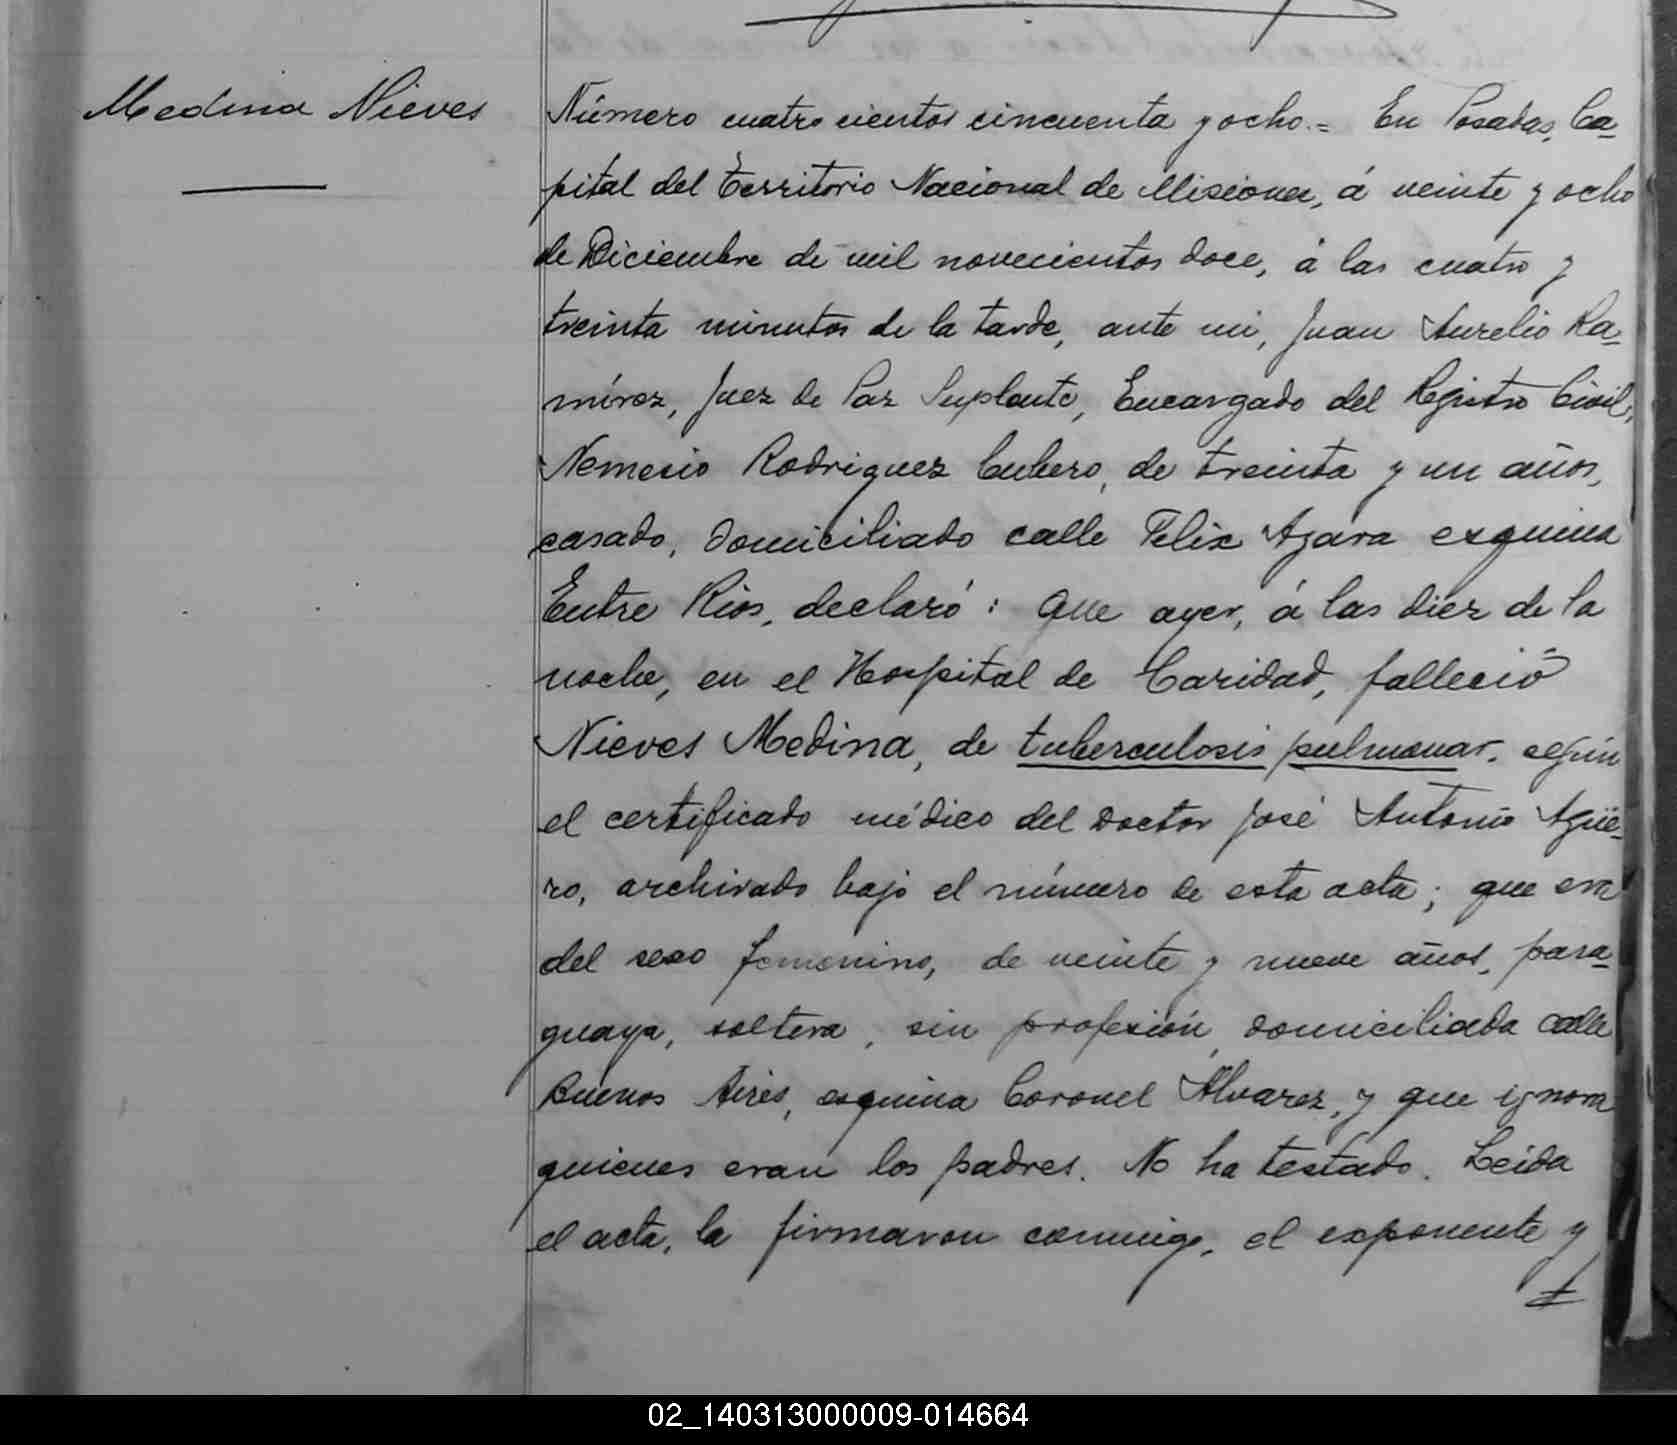 Medina Nieves
Número cuatro cientos cincuenta y ocho.= En Posadas, Ca-
pital del Territorio Nacional de Misiones, á veinte y ocho
de Diciembre de mil novecientos doce, á las cuatro y
treinta minutos de la tarde, ante mi, Juan Aurelio Ra-
mírez, Juez de Paz Suplente, Encargado del Registro Civil,
Nemesio Rodriguez Cubero, de treinta y un años,
casado, domiciliado calle Felix Azara esquina
Entre Rios, declaró: Que ayer, á las diez de la
noche, en el Hospital de Caridad, falleció
Nieves Medina, de tuberculosis pulmonar, según
el certificado médico del Doctor José Antonio Agüe-
ro, archivado bajo el número de esta acta; que era
del sexo femenino, de veinte y nueve años, para-
guaya, soltera, sin profesión, domiciliada calle
Buenos Aires, esquina Coronel Álvarez, y que ignora
quienes eran los padres. No ha testado. Leida
el acta, la firmaron conmigo, el exponente y
02_140313000009-014664